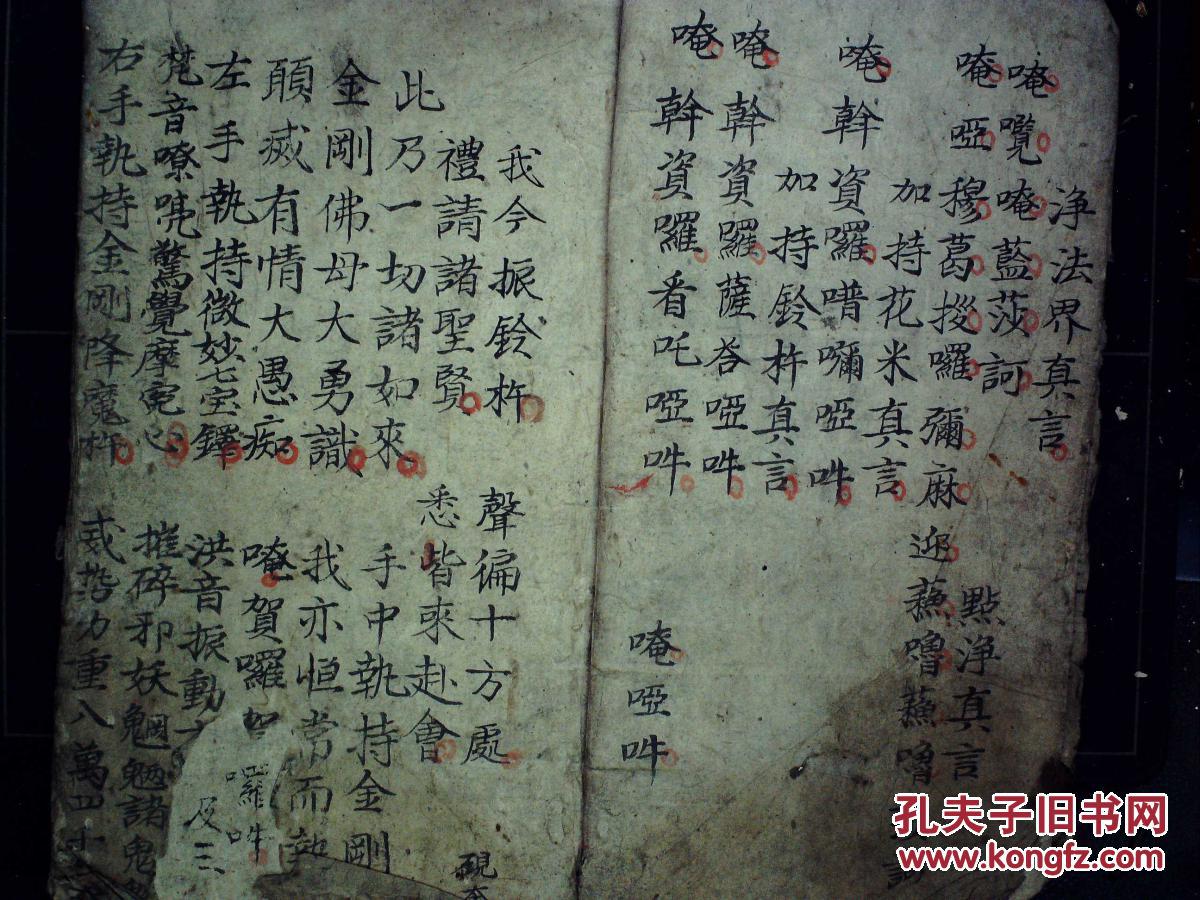 淨法界真言
唵㘕唵藍莎訶
點淨真言
唵啞穆葛拶囉彌麻迎蘓嚕蘓嚕
加持花米真言
唵斡資囉噆嚩啞吽
加持鈴杵真言
唵斡資囉薩荅啞吽
唵斡資囉看吒啞吽
唵啞吽
我今振鈴杵
聲徧十方處
禮請諸聖賢
悉皆來赴會
此乃一切諸如來
手中執持金剛
金剛佛母大勇識
我亦恒常而執
願滅有情大愚痴
唵賀囉
囉吽
左手執持微妙七宝鐸
洪音振動
及三
梵音嘹喨驚覺摩寃心
摧碎邪妖魍魎諸鬼
右手執持金剛降魔杵
威勢力重八萬四千
孔夫子旧书网
www.kongfz.com